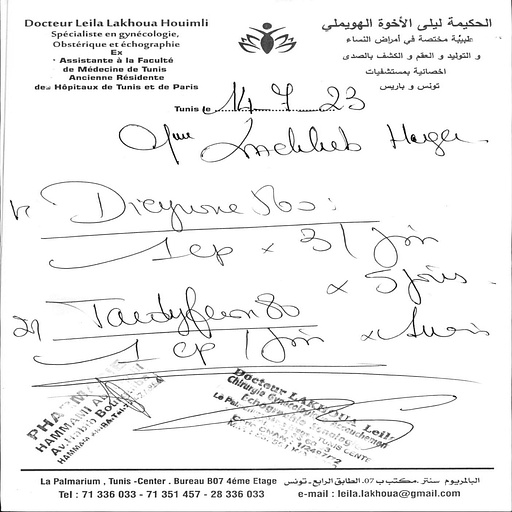 Docteur Leila Lakhoua Houimli
Spécialiste en gynécologie,
Obstétrique et échographie
Ex
Assistante à la Faculté
de Médecine de Tunis
Ancienne Résidente
des Hôpitaux de Tunis et de Paris
الحكيمة ليلى الأخوة الهويملي
طبيبة مختصة في أمراض النساء
و التوليد و العقم و الكشف بالصدى
اخصائية بمستشفيات
تونس و باريس
Tunis le 14 7 23
Mme Hager
1) Dicynone 500 :
1 cp x 3 / jour
x 5 jours
2) Tardyferon 80
1 cp / jour x
PHARMACIE
HAMMAMI
Docteur LAKHOUA Leila
Chirurgie Gynécologie Accouchement
La Palmarium, Tunis - Center . Bureau B07 4éme Etage
البالمريوم سنتر .مكتب ب 07. الطابق الرابع - تونس
Tel : 71 336 033 - 71 351 457 - 28 336 033
e-mail : leila.lakhoua@gmail.com